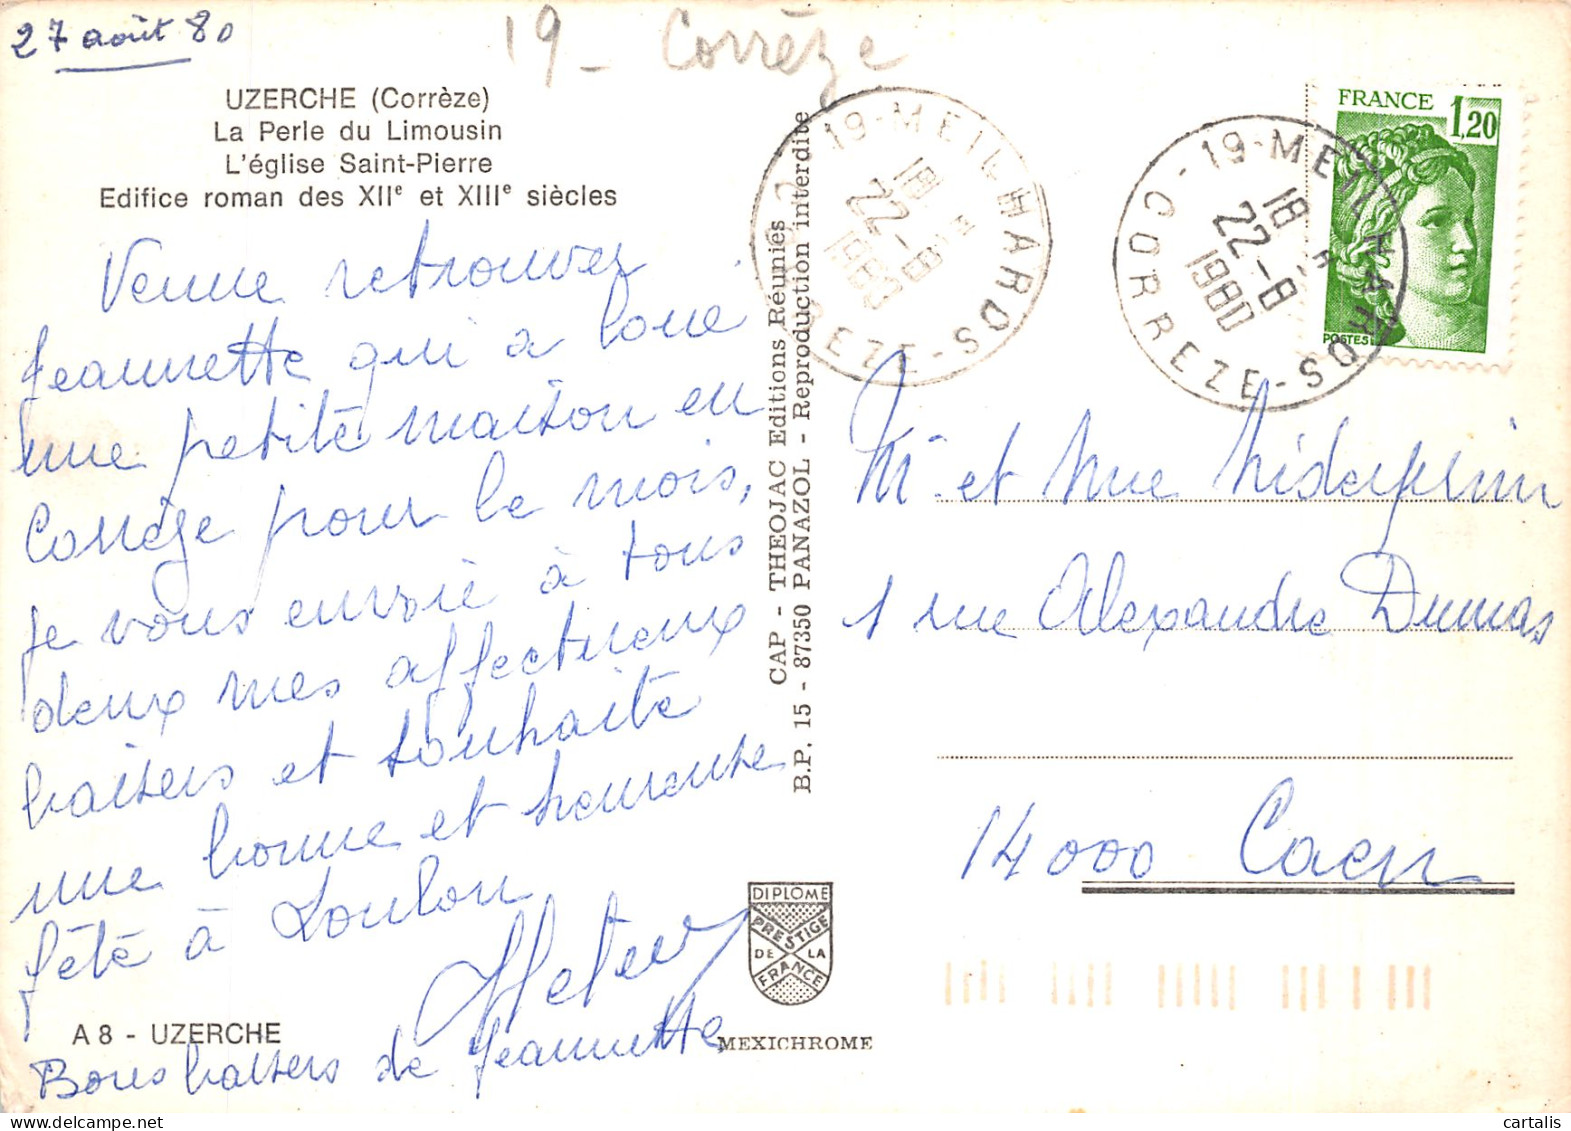 27 août 80
19 - Corrèze
UZERCHE (Corrèze)
La Perle du Limousin
L'église Saint-Pierre
Edifice roman des XIIe et XIIIe siècles
Venue retrouver
Jeannette qui a loué
une petite maison en
Corrèze pour le mois,
je vous envoie à tous
deux mes affectueux
baisers et souhaite
une bonne et heureuse
fête à Loulou
A 8 - UZERCHE
Bons baisers de Jeannette
CAP - THEOJAC Editions Réunies
B.P. 15 - 87350 PANAZOL - Reproduction interdite
DIPLOME
PRESTIGE
DE LA
FRANCE
MEXICHROME
19 - MEILHARDS - CORREZE
18 H
22 - 8
1980
19 - MEILHARDS - CORREZE
18 H
22 - 8
1980
FRANCE 1,20
POSTES
Mr et Mme
1 rue Alexandre Dumas
14000 Caen
cartalis